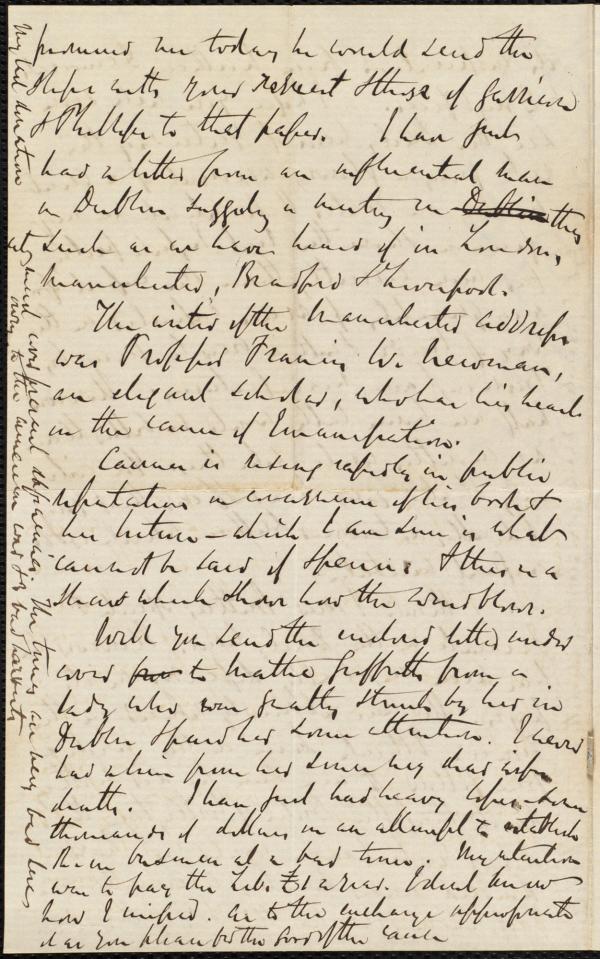 promised me today he would send the
Slips with your recent & those of Garrison
& Phillips to that paper. I have just
had a letter from an influential man
in Dublin suggesting a meeting in Dublin there
such as we have heard of in London,
Manchester, Bradford & Liverpool.
The writer of the Manchester Address
was Professor Francis W. Newman,
an elegant scholar, who has his heart
in the cause of Emancipation.
Cairnes is rising rapidly in public
reputation in consequence of his book &
his lecture – which I am sure is what
cannot be said of Spence & this is a
straw which shows how the wind blows.
Will you send the enclosed letter under
cover to Mattie Griffith from a
lady who was greatly struck by her in
Dublin & paid her some attention. I never
had a line from her since my dear wife's
death. I have just had heavy losses – some
thousands of dollars in an attempt to establish
in business at a bad time. My intention
was to pay the Lib. £1 a year. I dont know
how I missed. As to the exchange appropriate
it as you please for the good of the cause
My last donation
at present
The times are very bad here
owing to the American war & bad harvests